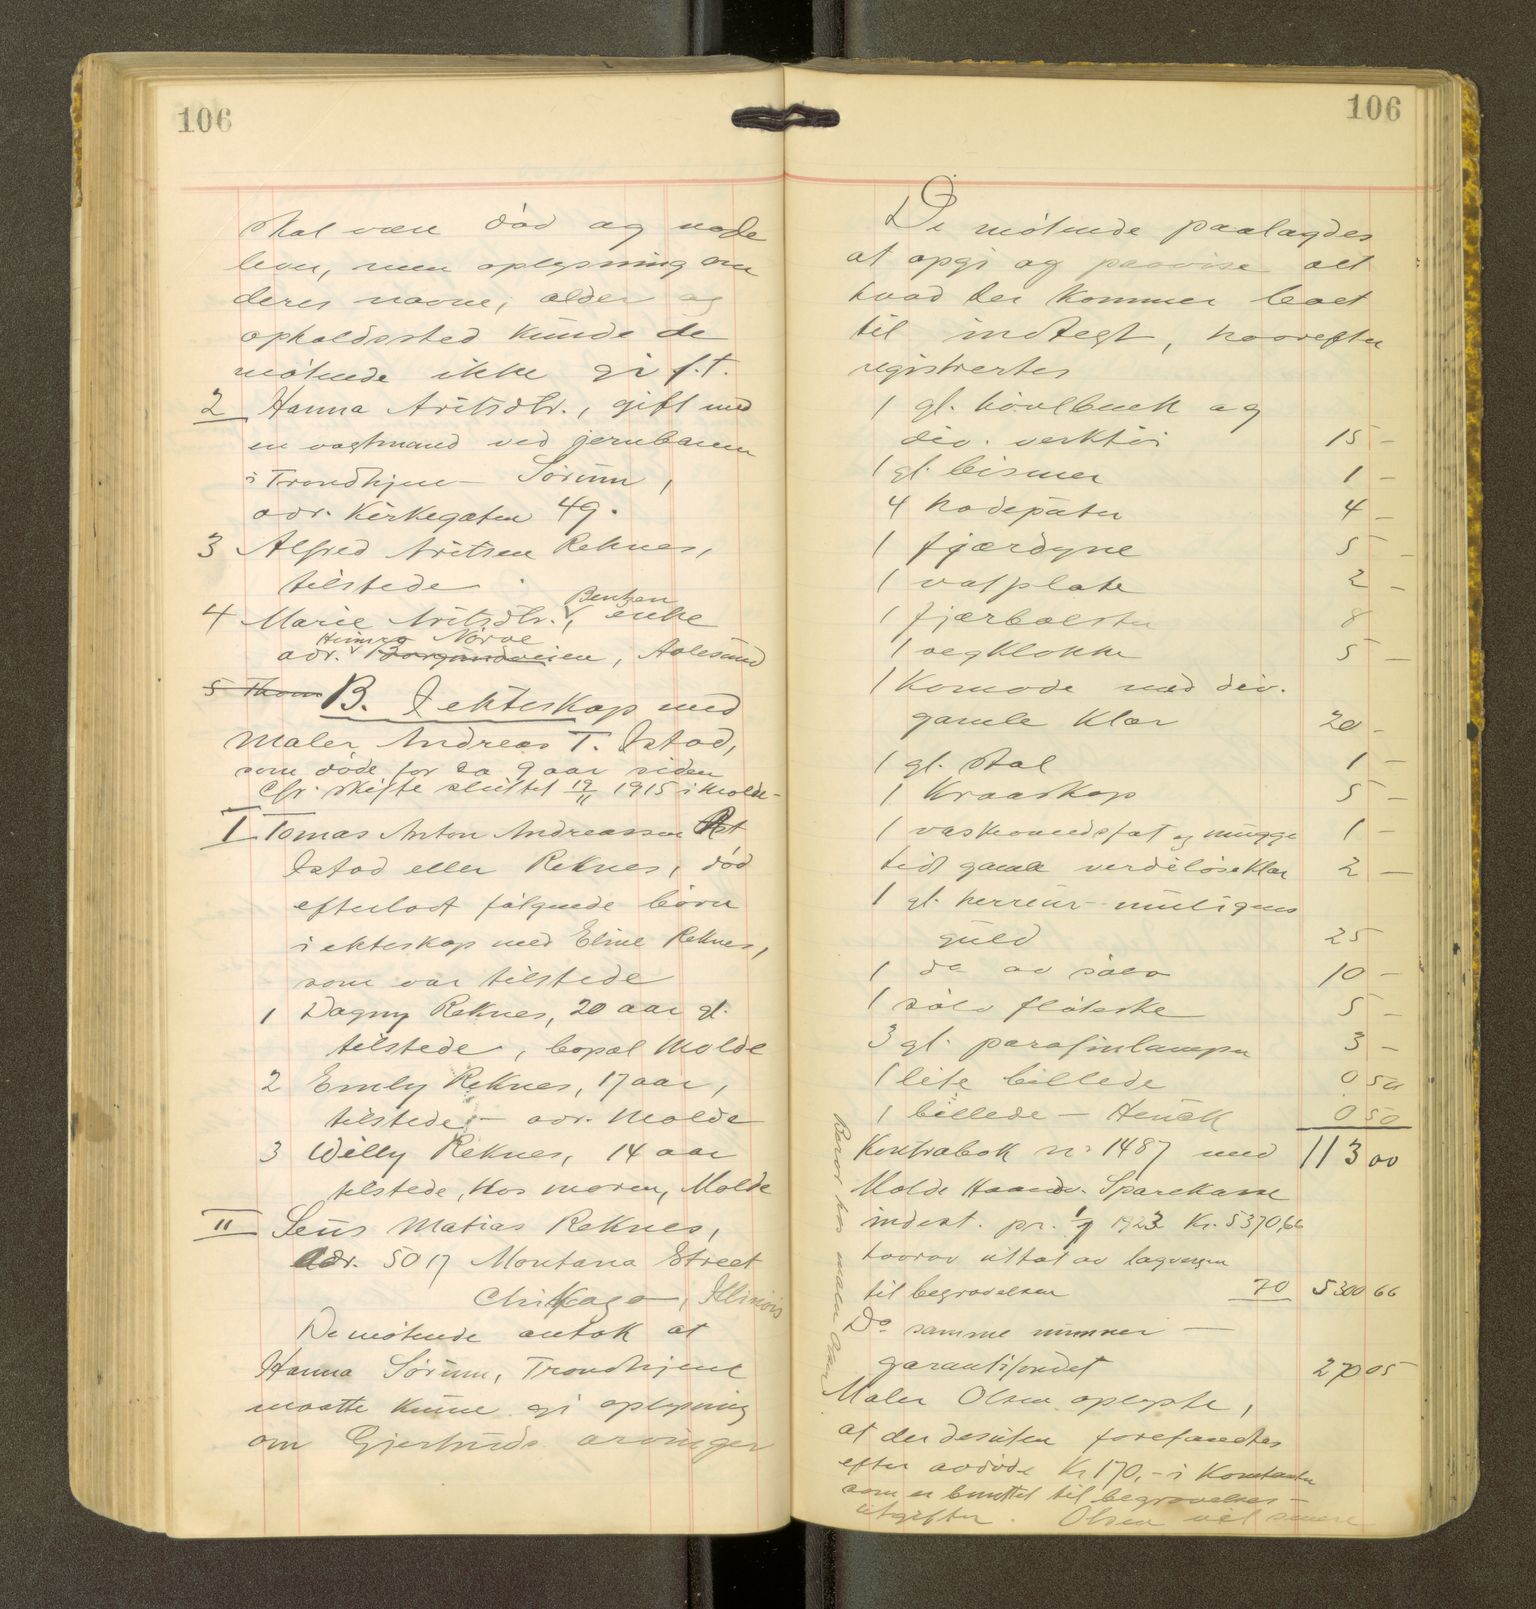 106
skal være død og nogle
lever, men oplysning om
deres navne, alder og
opholdssted kunde de
møtende ikke gi f.t.
2 Hanna Aritsdtr., gift med
en vagtmand ved jernbanen
i Trondhjem – Sørum,
adr. Kirkegaten 49.
3 Alfred Aritsen Reknes,
tilstede.
4 Marie Aritsdtr., Bentzen enke
Nørve
adr. Borgundveien, Aalesund
5 Thom B. I ekteskap med
Maler Andreas T. Istad,
som døde for ca 9 aar siden
Cfr. skifte sluttet 19/11 1915 i Molde –
I Tomas Anton Andreassen
Istad eller Reknes, død
efterlodt følgende børn
i ekteskap med Eline Reknes,
som var tilstede
1 Dagny Reknes, 20 aar gl.
tilstede, bopæl Molde
2 Emly Reknes, 17 aar,
tilstede – adr. Molde
3 Willy Reknes, 14 aar
tilstede, hos moren, Molde
II Matias Reknes,
adr. 5017 Montana Street
Chikago, Illinois
De møtende antok at
Hanna Sørum, Trondhjem
maatte kunne gi oplysning
om Gjertruds arvinger
106
De møtende paalagdes
at opgi og paavise alt
hvad der kommer boet
til indtegt, hvorefter
registrertes
1 gl. høvlbenk og
div. verktøi 15 –
1 gl. bismer 1 –
4 hodeputer 4 –
1 fjærdyne 5 –
1 vatplate 2 –
1 fjærbolster 8
1 vegklokke 5 –
1 Komode med div.
gamle klær 20 –
1 gl. stol 1 –
1 Kroaskap 5 –
1 vaskevandsfat og mugge 1 –
hidt gamle verdiløse klær 2 –
1 gl. herreur muligens
guld 25
1 do av sølv 10 –
1 sølv fløteske 5 –
3 gl. parafinlamper 3 –
1 lite billede 0 50
1 billede – 0 50
Kontrabok nr 1487 med 113 00
Molde Haandv. Sparekasse
indest. pr. 1/7 1923 Kr. 5370,66
hvorav uttat av lagvergen
til begravelsen 70 5300 66
Do samme nummer –
garantifondet 270 05
Maler Olsen oplyste,
at der desuten forefandtes
efter avdøde Kr 170,- i Kontanter
som er benyttet til begravelses–
utgifter. Olsen vil senere
Beror hos maler Olsen